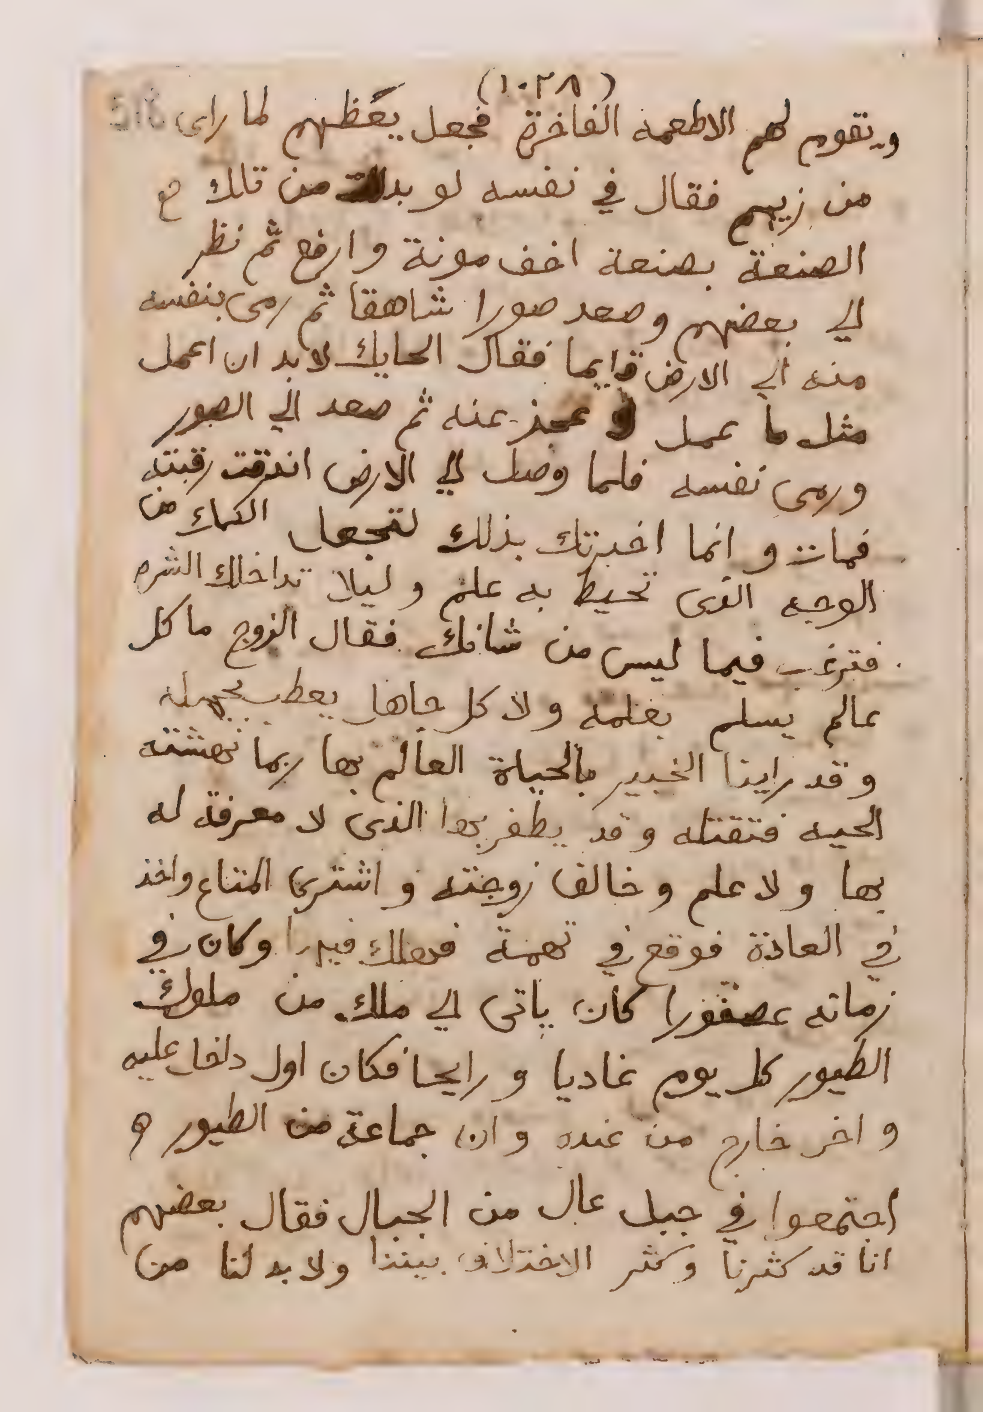 (١٠٣٨)
516
ويقوم لهم الاطعمه الفاخرة فجعل يعظهم لما راى
من زيهم فقال في نفسه لو بدلت من تلك
الصنعة بصنعة اخف مونة وارفع ثم نظر
الي بعضهم وصعد صورا شاهقا ثم رمى بنفسه
منه الي الارض قايما فقال الحايك لابد ان اعمل
مثل ما عمل عجز عنه ثم صعد الي الصور
ورمى نفسه فلما وصل الي الارض اندقت رقبته
فمات وانما اخبرتك بذلك لتجعل من
الوجه الذى تحيط به علم وليلا تداخلك الشره
فترغب فيما ليس من شانك فقال الزوج ما كل
عالم يسلم بعلمه ولا كل جاهل يعطب بجهله
وقد راينا الخبير بالحياة العالم بها ربما نهشته
الحيه فتقتله وقد يظفر بها الذى لا معرفة له
بها ولا علم وخالف زوجته واشترى المتاع واخذ
في العاذة فوقع في تهمة فهلك فيها وكان في
زمانه عصفورا كان ياتى الي ملك من ملوك
الطيور كل يوم غاديا ورايحا فكان اول داخل عليه
واخر خارج من عنده وان جماعة من الطيور
اجتمعوا في جبل عال من الجبال فقال بعضهم
انا قد كثرنا وكثر الاختلاف بيننا ولا بد لنا من